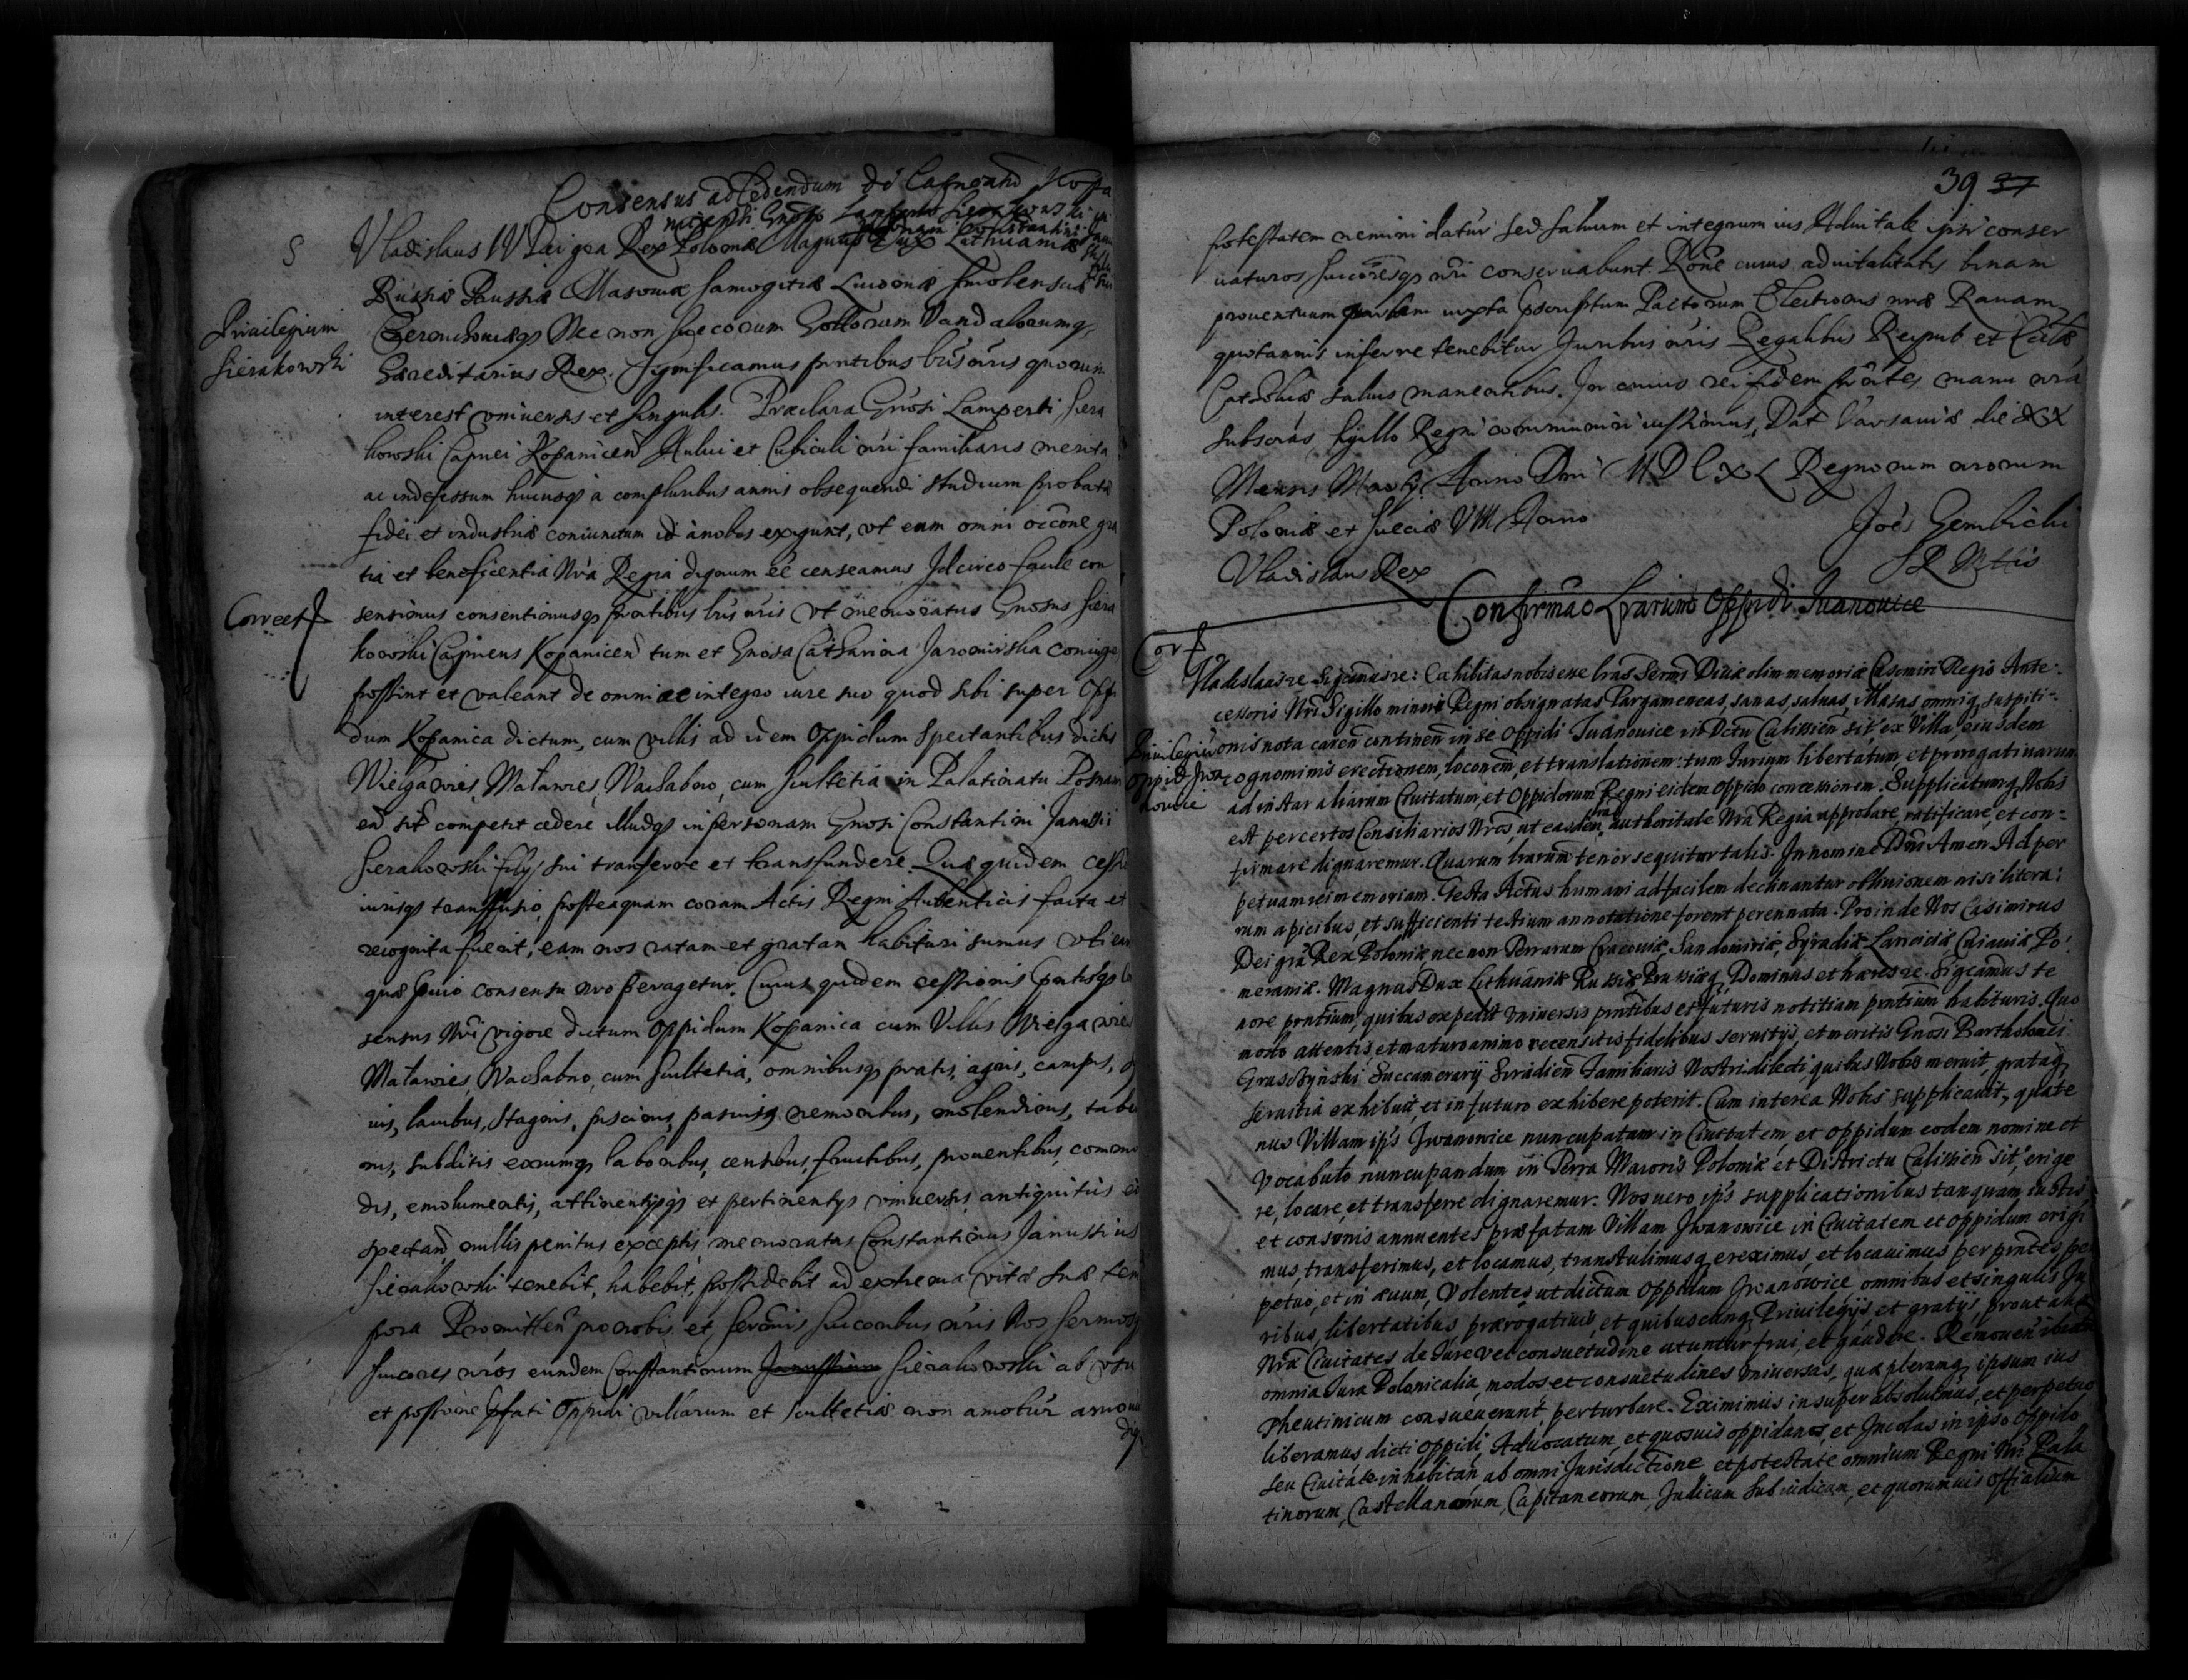 Consensus ad cedendum de Capneatu Kopa
nicensi Gnoso Lamperto Sierakowski in
personam Constantini
Vladislaus IV Dei gra Rex Poloniæ Magnus Dux Lithuaniæ
Russiæ Prussiæ Masoviæ Samogitiæ Livoniæ Smolensciæ
Privilegium
Sierakowski
Czernichoviæq Nec non Suecorum Gottorum Vandalorumq
Hæreditarius Rex. Significamus pntibus lris nris quorum
interest universis et singulis. Præclara Gnosi Lamperti Siera
kowski Capnei Kopanicen Aulici et Cubiculi nri familiaris merita
ac indefessum hucusq à compluribus annis obsequendi studium probatæ
fidei et industriæ coniunctum id à nobis exigunt, ut eum omni occone gra
tia et beneficentia Nra Regia dignum eé censeamus Idcirco facile con
Correct
sensimus consentimusq pntibus lris nris ut memoratus Gnosus Siera
kowski Capneus Kopanicen tum et Gnosa Catharina Jaromirska coniuge
possint et valeant de omni ac integro iure suo quod sibi super Oppi
dum Kopanica dictum, cum villis ad idem Oppidum spectantibus dictis
Wielgawies, Malawies, Wachabno, cum scultetia in Palatinatu Posnani
en sit competit cedere illudq in personam Gnosi Constantini Janussii
Sierakowski filij sui transferre et transfundere. Quæ quidem cessio
iurisq transfusio, posteaquam coram Actis Regni Authenticis facta et
recognita fuerit, eam nos ratam et gratam habituri sumus uti
quæ prævio consensu nro peragetur. Cuius quidem cessionis
sensus Nri vigore dictum Oppidum Kopanica cum Villis Wielgawies
Malawies, Wachabno, cum scultetia, omnibusq pratis, agris, campis,
uis, lacubus, stagnis, piscinis, pascuisq nemoribus, molendinis, tabe
nis, subditis eorumq laboribus, censibus, fructibus, proventibus, commo
dis, emolumentis, attinentijsq et pertinentijs universis antiquitus
spectan nullis penitus exceptis memoratus Constantinus Janussius
Sierakowski tenebit, habebit, possidebit ad extrema vitæ suæ tem
pora Promitten pro nobis et Sermis Succoribus nris Nos Sermosq
Succores nros eundem Constantinum Janussium Sierakowski ab usu
et possione pfati Oppidi villarum et scultetiæ non amotur amo
39 37
potestatem nemini datur sed salvum et integrum ius Advitale ipsi conser
vaturos, Succoresq nri conservabunt. Rone cuius advitalitatis binam
proventuum quartam iuxta pscriptum Pactorum Electionis nræ Ravam
quotannis inferre tenebitur Juribus nris Regalibus Reipub et Ecclæ
Catholicæ salvis manentibus. In cuius rei fidem pntes manu nra
subscras sigillo Regni communiri iussimus, Dat Varsaviæ die XX
Mensis Martij Anno Dni MDCXL Regnorum nrorum
Poloniæ et Sueciæ VIII Anno
Joés Gembicki
Vladislaus Rex
SR Mttis
Confirmao Lrarum Oppidi Iwanovice
Cor
Vladislaus re. Sigcamus re: Exhibitas nobis esse lras Sermi Divæ olim memoriæ Casimiri Regis Ante
cessoris Nri Sigillo minori Regni obsignatas Pargameneas, sanas, salvas, illæsas, omniq suspiti
Privilegiu
oppid Iwa
novice
onis nota caren continen in se Oppidi Iwanovice in Dctu Calissien sit, ex Villa eiusdem
cognominis erectionem, loconem, et translationem: tum Iurium libertatum, et prerogativarum
ad instar aliarum Civitatum, et Oppidorum Regni eidem oppido concessionem. Supplicatumq Nobis
est per certos Consiliarios Nros, ut easdem lras authoritate Nra Regia approbare, ratificare, et con=
firmare dignaremur. Quarum lrarum tenor sequitur talis. In nomine Dni Amen. Ad per
petuam rei memoriam. Gesta Actus humani ad facilem declinantur oblivionem nisi litera:
rum apicibus, et sufficienti testium annotatione forent perennata. Proinde Nos Casimirus
Dei gra Rex Poloniæ nec non Terrarum Cracoviæ, Sandomiriæ, Syradiæ Lanciciæ Cuiaviæ, Po:
meraniæ. Magnus Dux Lithuaniæ Russiæ Prussiæq Dominus et hæres re. Sigcamus te
nore pntium, quibus expedit universis pntibus et futuris notitiam pntium habituris. Quo
modo attentis, et maturo animo recensitis fidelibus servitijs, et meritis Gnosi Bartholomei
Grusczynski Succamerarij Siradien Familiaris Nostri dilecti, quibus Nobis meruit, grataq
servitia exhibuit, et in futuro exhibere poterit. Cum interea Nobis supplicavit, quate
nus Villam ips Iwanowice nuncupatam in Civitatem, et oppidum eodem nomine et
vocabulo nuncupandum, in Terra Maioris Poloniæ et Districtu Calissien sit, erige
re, locare, et transferre dignaremur. Nos vero ips supplicationibus tanquam iustis,
et consonis annuentes præfatam Villam Iwanowice in Civitatem et oppidum erigi
mus, transferimus, et locamus, transtulimusq ereximus, et locavimus per pntes, per
petuo, et in ævum, Volentes ut dictum Oppidum Iwanowice omnibus et singulis Ju
ribus, libertatibus prærogativis, et quibuscunq Privilegijs et gratijs, prout aliæ
Nræ Civitates de Iure vel consuetudine utuntur, frui, et gaudere. Removen ibidem
omnia Iura Polonicalia, modos et consuetudines universas, quæ plerumq ipsum ius
Theutinicum consueverunt perturbare. Eximimus insuper absolvimus, et perpetuo
liberamus dicti oppidi, Advocatum, et quosvis oppidanos, et Incolas in ipso oppido
seu Civitate inhabitan ab omni Jurisdictione et potestate omnium Regni Nri Pala
tinorum, Castellanorum, Capitaneorum, Iudicum Subiudicum, et quorumvis Officialium